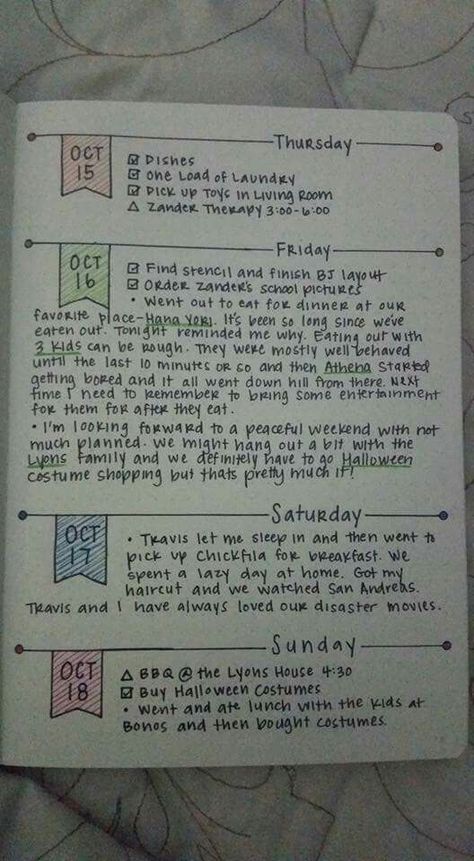 Thursday
OCT
15
Dishes
One Load of Laundry
Pick up Toys in Living Room
Zander Therapy 3:00-6:00
Friday
OCT
16
Find stencil and finish BJ layout
Order Zander's school pictures
• Went out to eat for dinner at our
favorite place-Hana Yori. It's been so long since we've
eaten out. Tonight reminded me why. Eating out with
3 kids can be rough. They were mostly well behaved
until the last 10 minutes or so and then Athena started
getting bored and it all went down hill from there. Next
time I need to remember to bring some entertainment
for them for after they eat.
• I'm looking forward to a peaceful weekend with not
much planned. We might hang out a bit with the
Lyons family and we definitely have to go Halloween
costume shopping but thats pretty much it!
Saturday
OCT
17
• Travis let me sleep in and then went to
pick up Chickfila for breakfast. We
spent a lazy day at home. Got my
haircut and we watched San Andreas.
Travis and I have always loved our disaster movies.
Sunday
OCT
18
BBQ @ the Lyons House 4:30
Buy Halloween Costumes
• Went and ate lunch with the kids at
Bonos and then bought costumes.